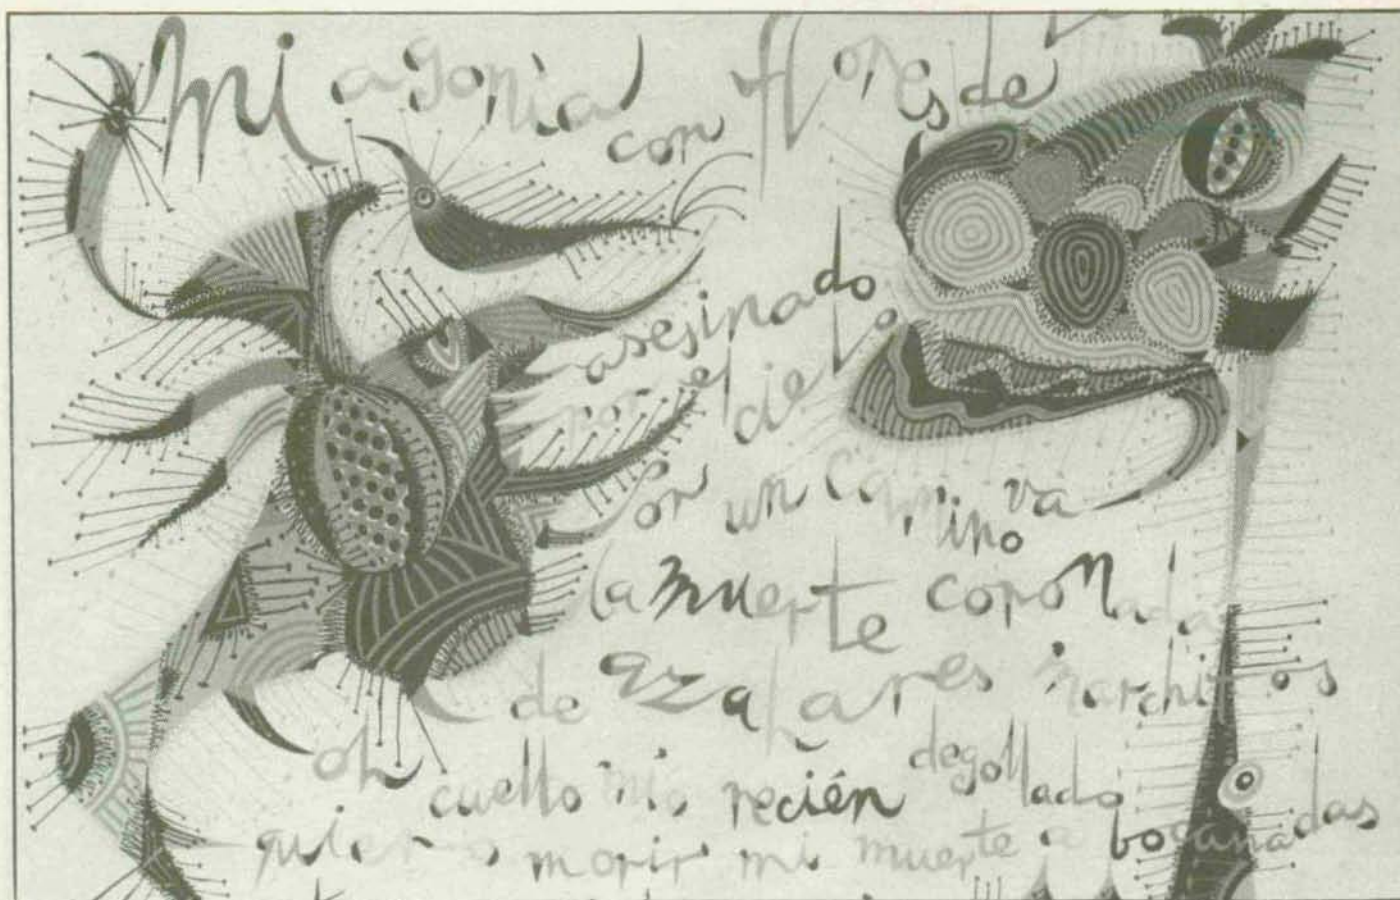 mi agonía con flores de
asesinado
por el cielo
Por un camino va
la muerte coronada
de azahares marchitos
oh cuello mío recién degollado
quiero morir mi muerte a bocanadas